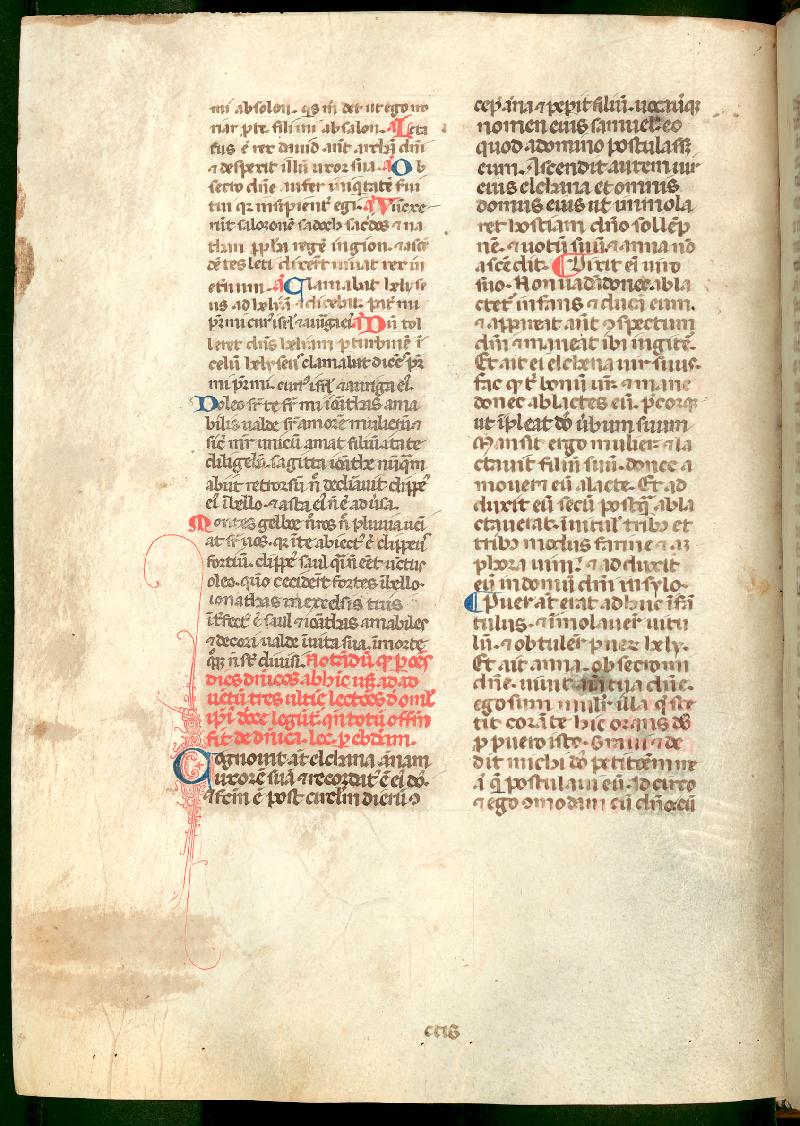 mi absolon. q̄s m̄ det ut ego mo
riar ꝓ te fili mi absalon. Leta
tus ē rex dauid
⁊ despexit illū uxor sua. Ob
secro dn̄e aufer iniq̄tatē fui
tui qr insipient̄ egi. Vnxe
nūt salomonē sadoch sac̄dos ⁊ na
than ꝓph̄a regē in gion. ⁊ ascē
dētes leti dixer̄t uiuat rex in
et̄num. Clamabat helyse
us ad helyā ⁊ dicebat. pat̄ mi
pr̄ mi curr̄ isrl̄ ⁊ auriga eī Dū tol
leret dn̄s heliam ꝑ turbinē ī
celū helyseus clamabat dicēs pr̄
mi pr̄ mi. curr̄ isrl̄ ⁊ auriga eī.
Doleo sr̄ te fr̄ mi iōathas ama
bilis ualde sr̄ amorē mulierū
sic̄ mr̄ unicū amat filiū ita te
diligebā. sagitta iōathe nūq̄m
abiit retrorsū n̄ declinauit clippē
eī ī bello. ⁊ asta eī n̄ ē aduersa.
Montes gelboe n̄ ros n̄ pluuia ueni
at sr̄ uos. qr ī te abiect̄ ē clippeus
fortiū. clippē saul q̄si n̄ eēt unctus
oleo. quō cecider̄t fortes ī bello.
ionathas in excelsis tuis
īt̄fect̄ ē saul ⁊ iōathas amabiles
⁊ decori ualde ī uita sua. ī morte
qq̄ n̄ st̄ diuisi. Notādū qr ꝑ oēs
dies dn̄icos ab hic usq̄ ad ad
uētū tres ultīe lectōes d̄ omel̄
ip̄i dīce legūt̄. qn̄ totū offm̄
fit de dn̄ica. lec. ꝑ ebdom.
Cognouit āt elchana annam
uxorē suā ⁊ recordat̄ ē eī do.
⁊ fc̄m ē post circl̄m dierū ɔ
cep. āna ⁊ pepit filiū. uocauitq̄
nomen eius samuel. eo
quod a domino postulass̄
eum. Ascendit autem uir
eius elchana et omnis
domus eius ut immola
ret hostiam dn̄o sollēp
nē. ⁊ uotū suū. ⁊ anna nō
ascēdit. Dixit eī uiro
suo. Non uadā donec abla
ctet̄ infans ⁊ ducā eum.
⁊ appareat āīt ɔspectum
dn̄i ⁊ maneat ibi iugit̄.
Et ait ei elchana uir suus.
fac qr t̄ bonū uīr. ⁊ mane
donec ablactes eū. p̄corq̄
ut īpleat do ūbum suum
Mansit ergo mulier ⁊ la
ctauit filiū suū. donec a
moueret eū a lacte. Et ad
duxit eū secū postq̄ abla
ctauerat. in uitul̄ tribꝫ et
tribꝫ modiis farine ⁊ am
phora uini. ⁊ adduxit
eū in domū dn̄i in sylo.
Puer āt erat adhuc īfā
tulus. ⁊ īmolauer̄ uitu
lū. ⁊ obtuler̄ puerꝫ hely.
Et ait anna. obsecro mi
dn̄e. uiuit āīa tua dn̄e.
ego sum mulī illa q̄ ste
tit corā te hic orans dō
ꝓ puero iste. Oraui ⁊ de
dit michi do petitōem me
ā q̄ postulaui eū. Idcirco
⁊ ego ɔmodaui eū dn̄o. eū
ccıı